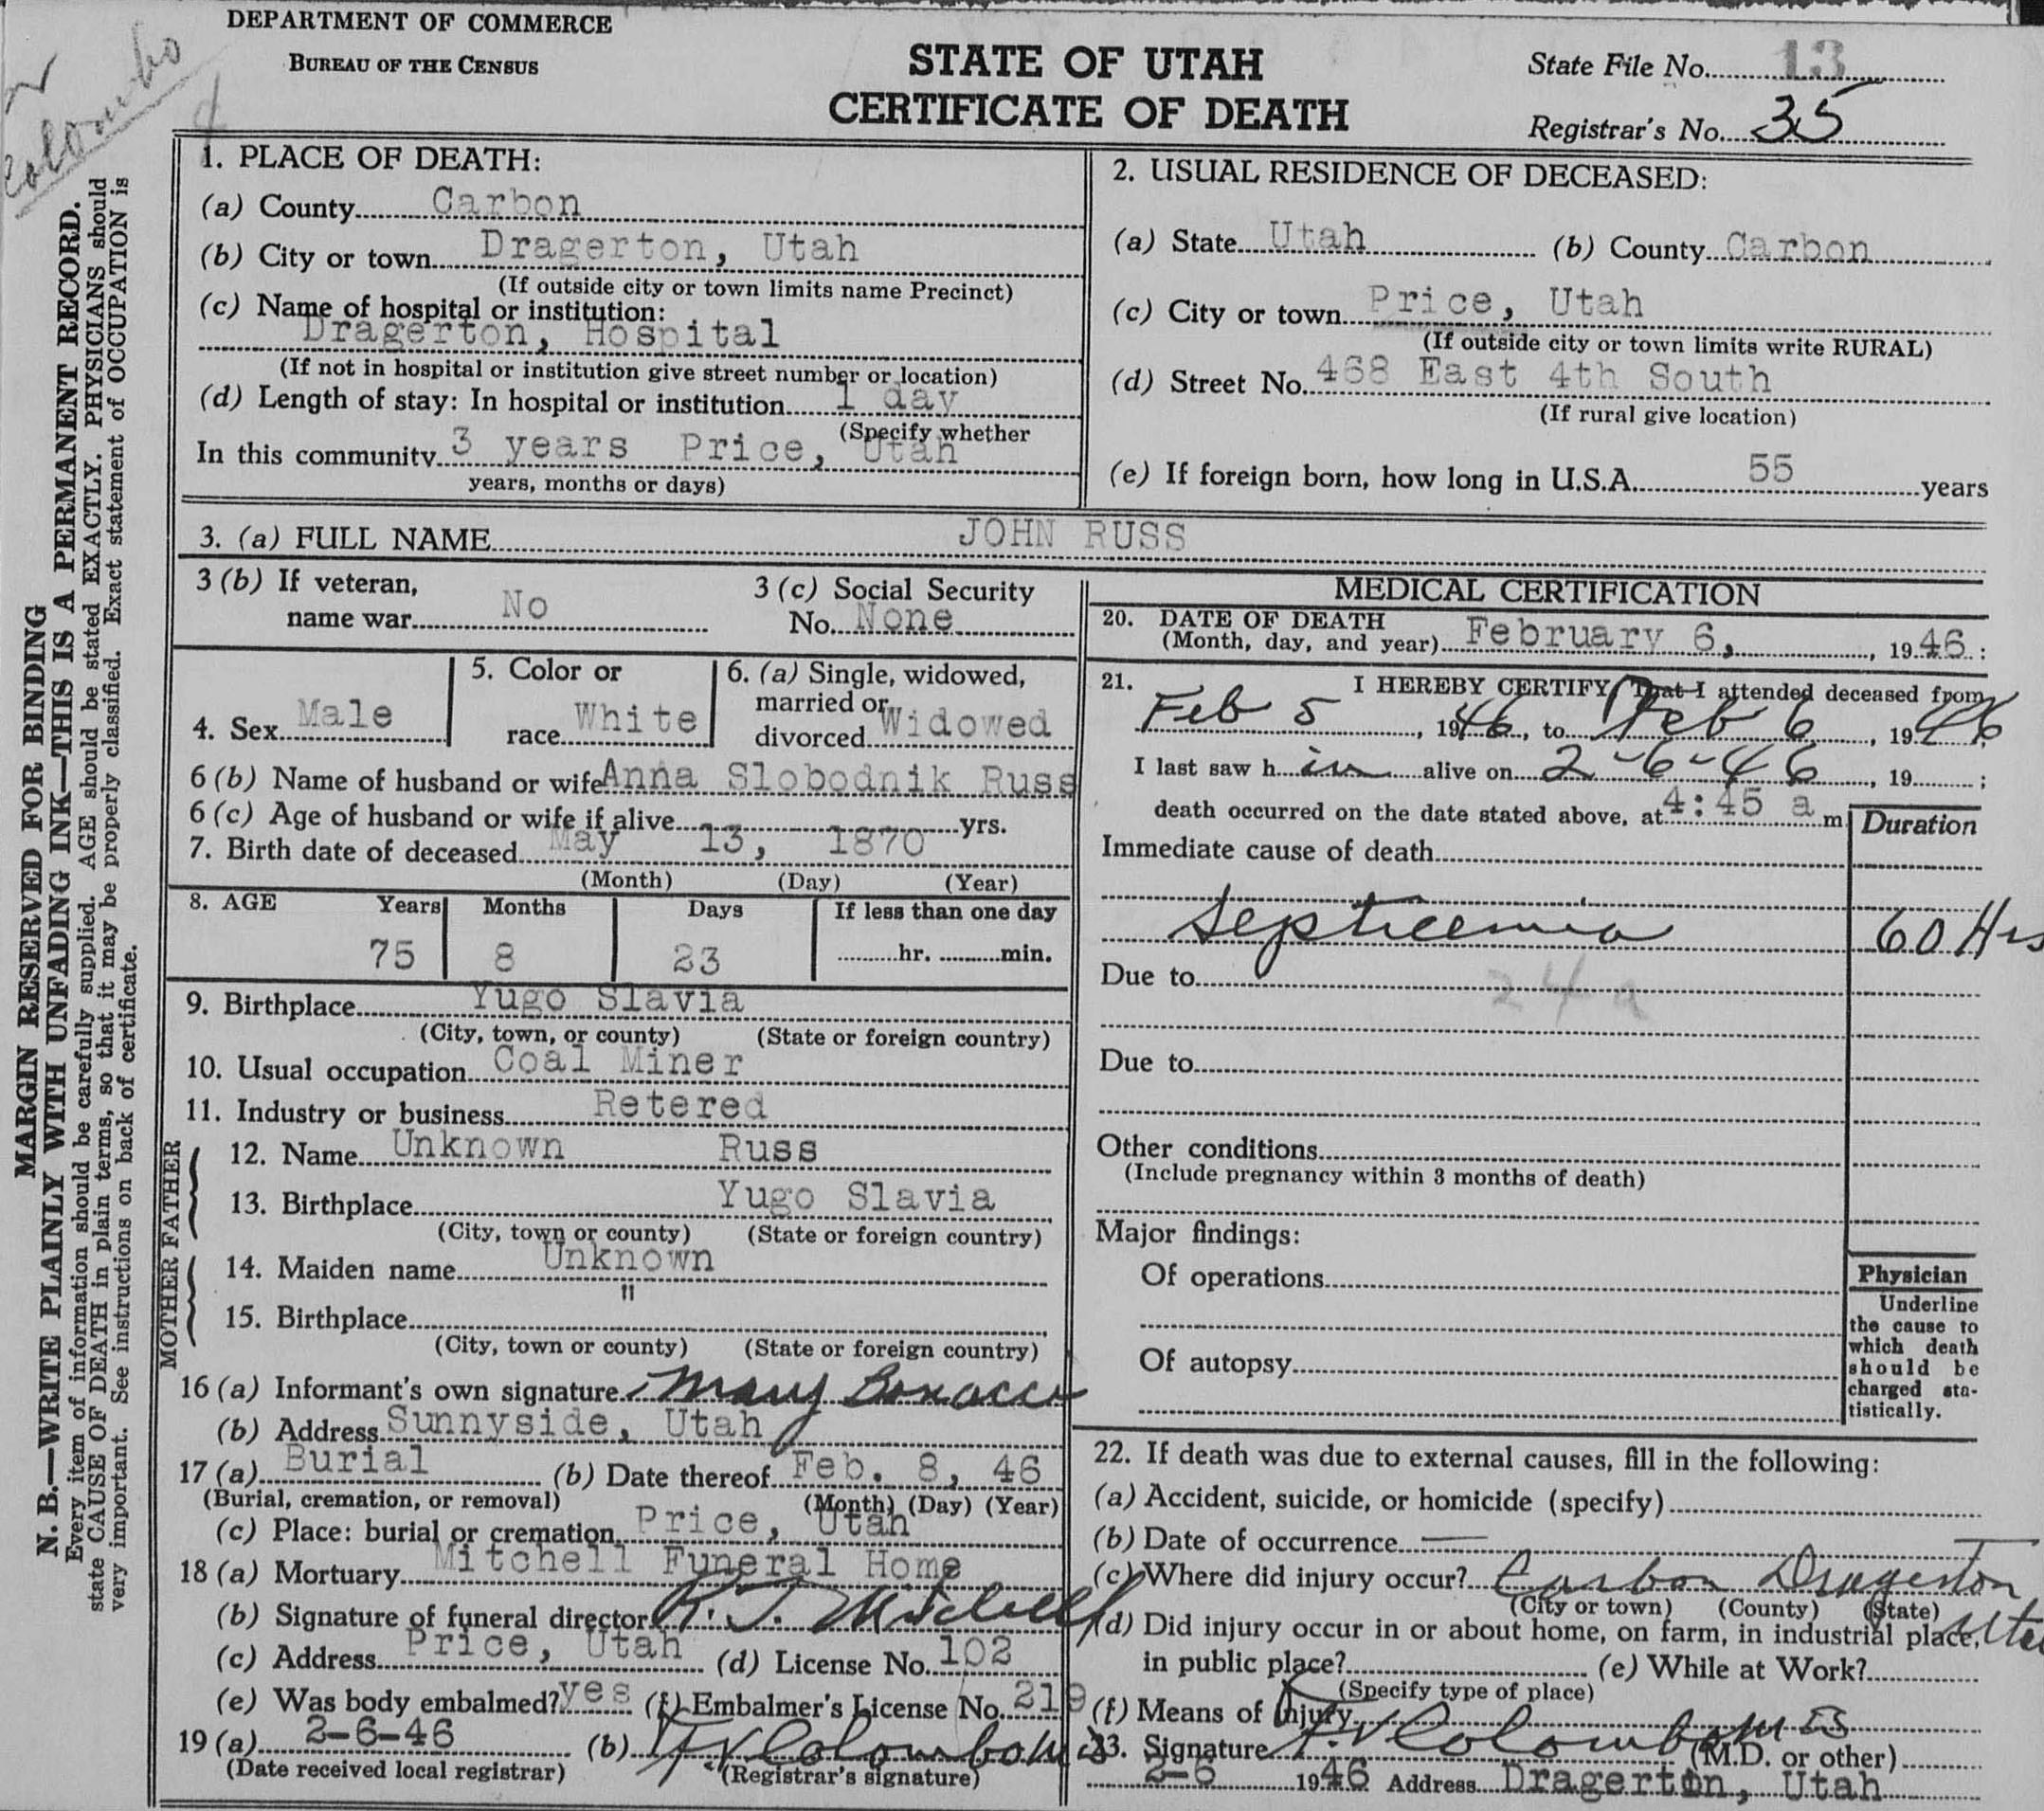 DEPARTMENT OF COMMERCE
BUREAU OF THE CENSUS
STATE OF UTAH
CERTIFICATE OF DEATH
State File No. 13
Registrar's No. 35
Colombo
MARGIN RESERVED FOR BINDING
N. B.—WRITE PLAINLY WITH UNFADING INK—THIS IS A PERMANENT RECORD.
Every item of information should be carefully supplied. AGE should be stated EXACTLY. PHYSICIANS should
state CAUSE OF DEATH in plain terms, so that it may be properly classified. Exact statement of OCCUPATION is
very important. See instructions on back of certificate.
1. PLACE OF DEATH:
(a) County Carbon
(b) City or town Dragerton, Utah
(If outside city or town limits name Precinct)
(c) Name of hospital or institution:
Dragerton, Hospital
(If not in hospital or institution give street number or location)
(d) Length of stay: In hospital or institution 1 day
(Specify whether
In this community 3 years Price, Utah
years, months or days)
2. USUAL RESIDENCE OF DECEASED:
(a) State Utah (b) County Carbon
(c) City or town Price, Utah
(If outside city or town limits write RURAL)
(d) Street No. 468 East 4th South
(If rural give location)
(e) If foreign born, how long in U.S.A. 55 years
3. (a) FULL NAME JOHN RUSS
3 (b) If veteran,
name war No
3 (c) Social Security
No. None
4. Sex Male
5. Color or
race White
6. (a) Single, widowed,
married or
divorced Widowed
6 (b) Name of husband or wife Anna Slobodnik Russ
6 (c) Age of husband or wife if alive yrs.
7. Birth date of deceased May 13, 1870
(Month) (Day) (Year)
8. AGE Years Months Days If less than one day
75 8 23 hr. min.
9. Birthplace Yugo Slavia
(City, town, or county) (State or foreign country)
10. Usual occupation Coal Miner
11. Industry or business Retered
FATHER
12. Name Unknown Russ
13. Birthplace Yugo Slavia
(City, town or county) (State or foreign country)
MOTHER
14. Maiden name Unknown
15. Birthplace "
(City, town or county) (State or foreign country)
16 (a) Informant's own signature Mary Bonacci
(b) Address Sunnyside, Utah
17 (a) Burial (b) Date thereof Feb. 8, 46
(Burial, cremation, or removal) (Month) (Day) (Year)
(c) Place: burial or cremation Price, Utah
18 (a) Mortuary Mitchell Funeral Home
(b) Signature of funeral director R. J. Mitchell
(c) Address Price, Utah (d) License No. 102
(e) Was body embalmed? yes (f) Embalmer's License No. 219
19 (a) 2-6-46 (b) Colombo M D
(Date received local registrar) (Registrar's signature)
MEDICAL CERTIFICATION
20. DATE OF DEATH
(Month, day, and year) February 6, 1946;
21. I HEREBY CERTIFY, That I attended deceased from
Feb 5, 1946, to Feb 6, 1946;
I last saw h im alive on 2-6-46, 19 ;
death occurred on the date stated above, at 4:45 a m
Duration
Immediate cause of death
Septicemia 60 Hrs
Due to 24a
Due to
Other conditions
(Include pregnancy within 3 months of death)
Major findings:
Of operations
Of autopsy
Physician
Underline
the cause to
which death
should be
charged sta-
tistically.
22. If death was due to external causes, fill in the following:
(a) Accident, suicide, or homicide (specify)
(b) Date of occurrence —
(c) Where did injury occur? Carbon Dragerton Utah
(City or town) (County) (State)
(d) Did injury occur in or about home, on farm, in industrial place,
in public place? (e) While at Work?
(Specify type of place)
(f) Means of Injury
23. Signature Colombo M D (M.D. or other)
2-6 1946 Address Dragerton, Utah